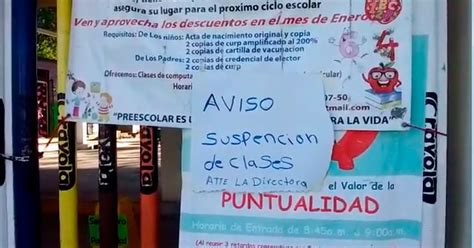 asegura su lugar para el proximo ciclo escolar
Ven y aprovecha los descuentos en el mes de Enero
Requisitos: De Los niños: Acta de nacimiento original y copia
2 copias de curp amplificado al 200%
2 copias de cartilla de vacunacion
De Los Padres: 2 copias de credencial de elector
2 copias de curp
Ofrecemos: Clases de computa
Horari
07-50
gmail.com
"PREESCOLAR ES L
RA LA VIDA"
AVISO
SUSPENCION
de clases
ATTE LA Directora
Crayola
Crayola
Crayola
Crayola
el Valor de la
PUNTUALIDAD
Horario de Entrada de 8:45a.m. a 9:00a.m.
(Al reunir 3 retardos